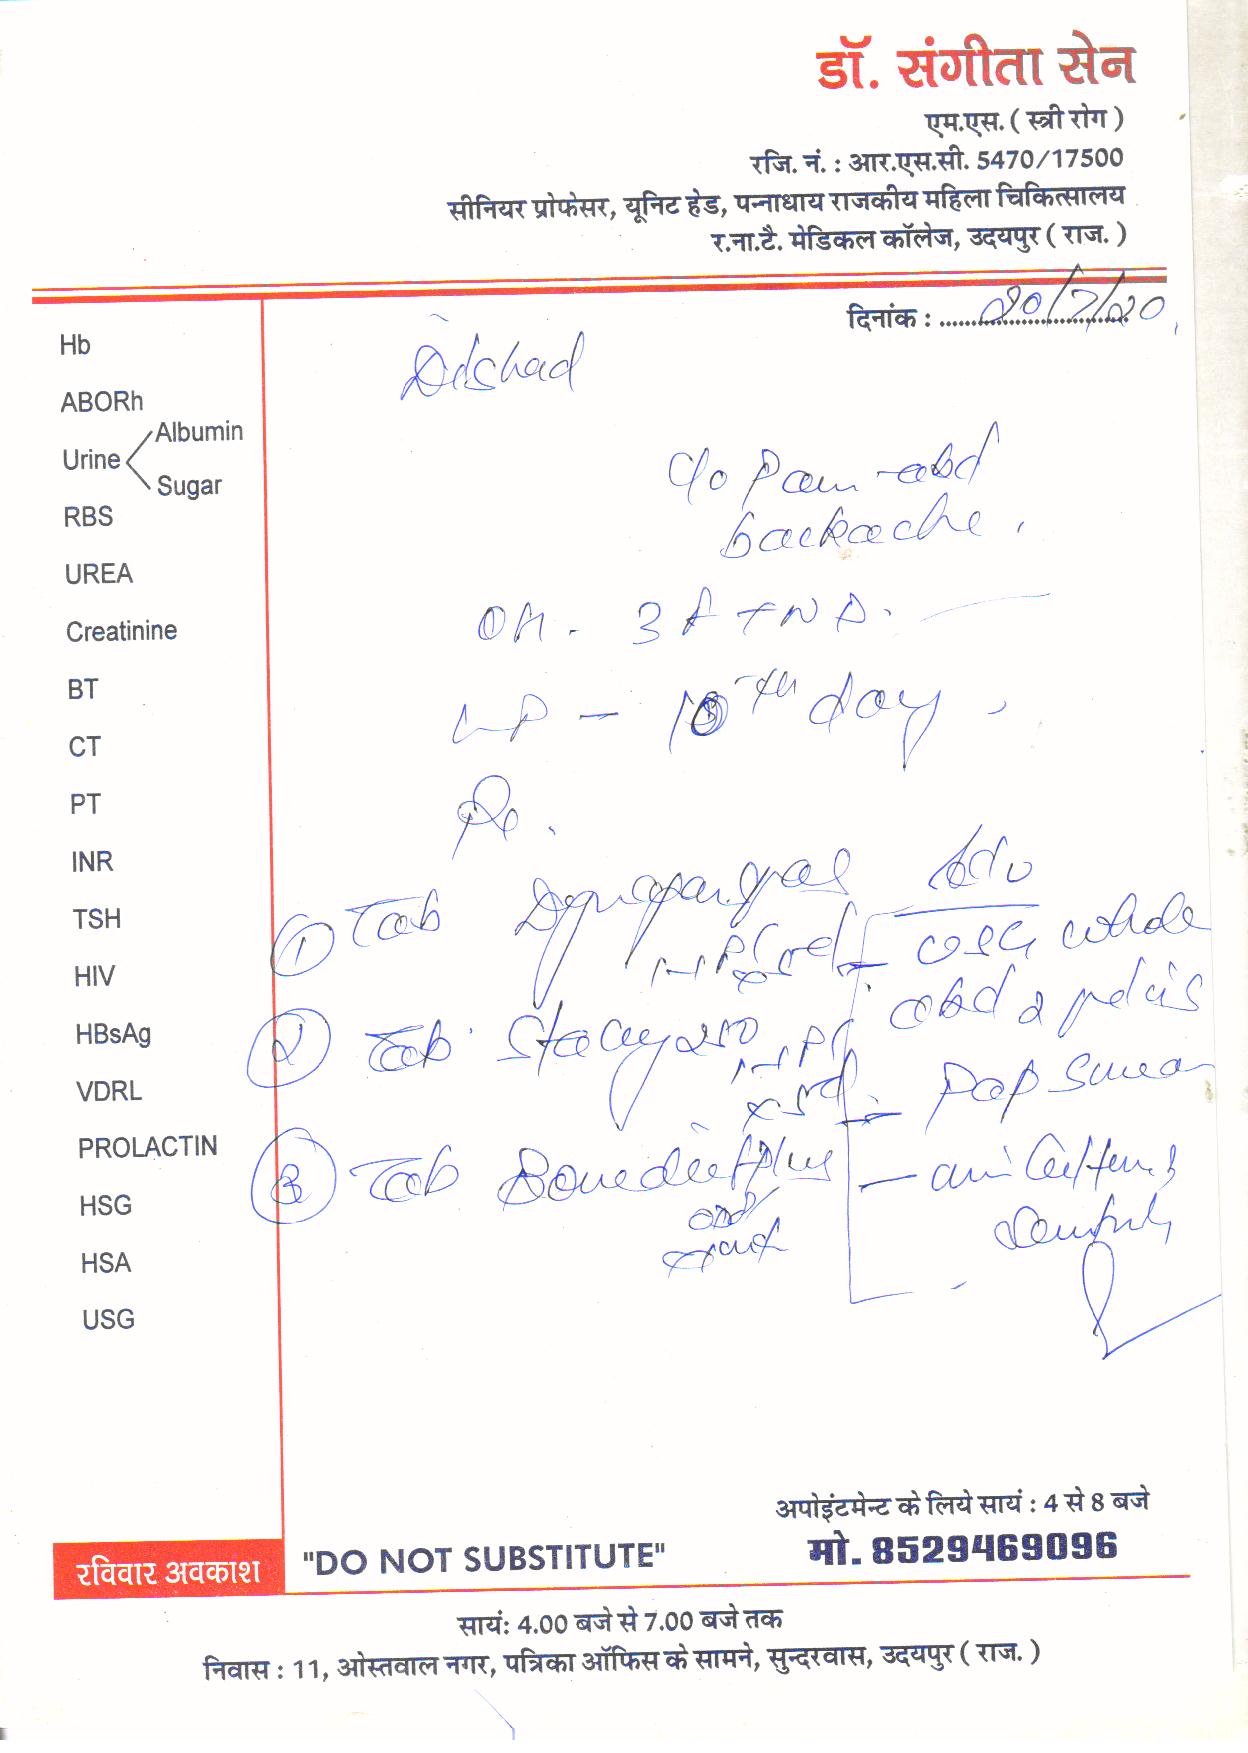 डॉ. संगीता सेन
एम.एस. ( स्त्री रोग )
रजि. नं. : आर.एस.सी. 5470/17500
सीनियर प्रोफेसर, यूनिट हेड, पन्नाधाय राजकीय महिला चिकित्सालय
र.ना.टै. मेडिकल कॉलेज, उदयपुर ( राज. )
दिनांक : 20/7/20
Dilshad
c/o Pain - abd
backache.
OH - 3 FTND.
LP - 10th day
Rx.
Adv
1 Tab
1-1 PC x 5d
- USG whole
abd & pelvis
2 Tab. 250
1-1 PC
x 5d
- Pap Smear
3 Tab plus
Hb
ABORh
Urine
Albumin
Sugar
RBS
UREA
Creatinine
BT
CT
PT
INR
TSH
HIV
HBsAg
VDRL
PROLACTIN
HSG
HSA
USG
अपोइंटमेन्ट के लिये सायं : 4 से 8 बजे
मो. 8529469096
रविवार अवकाश
"DO NOT SUBSTITUTE"
सायं: 4.00 बजे से 7.00 बजे तक
निवास : 11, ओस्तवाल नगर, पत्रिका ऑफिस के सामने, सुन्दरवास, उदयपुर ( राज. )